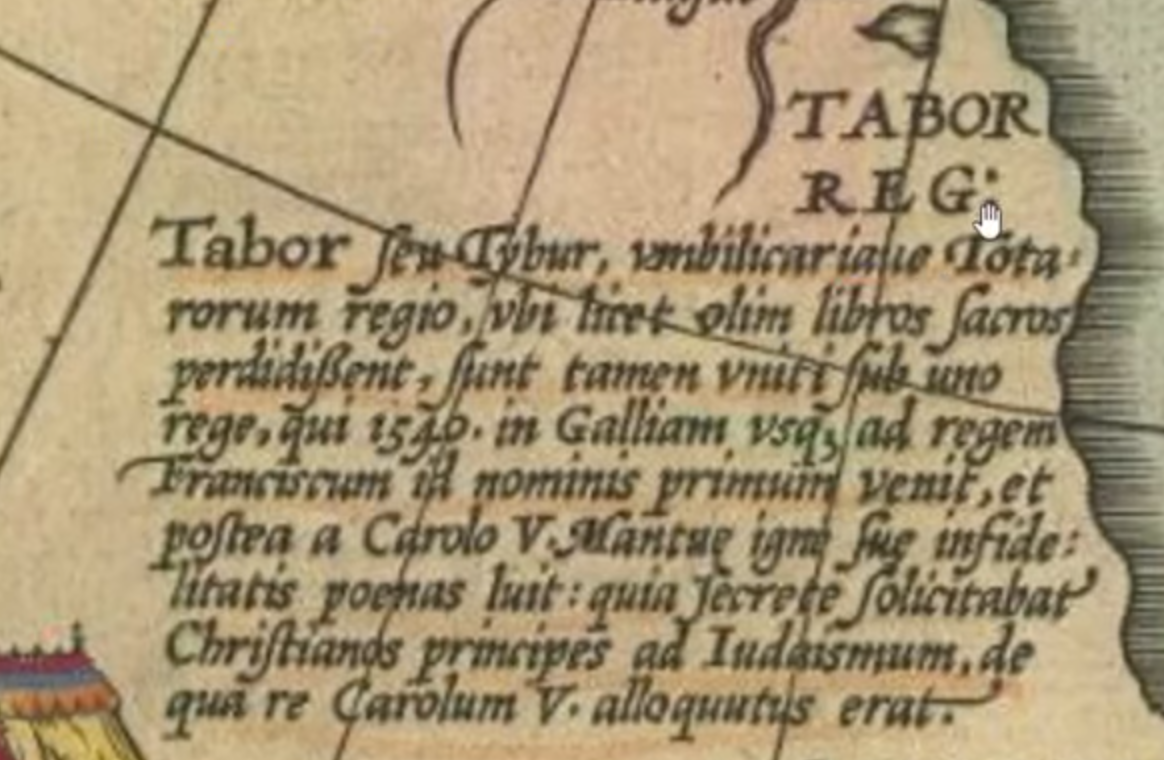 TABOR
REG:
Tabor ſeu Tybur, vmbilicariaue Tota:
rorum regio, vbi licet olim libros ſacros
perdidißent, ſunt tamen vniti ſub uno
rege, qui 1540. in Galliam vsq₃ ad regem
Franciscum id nominis primum venit, et
poſtea a Carolo V. Mantuę igni ſuę infide:
litatis poenas luit: quia ſecrete ſolicitabat
Chriſtianos principes ad Iudaismum, de
qua re Carolum V. alloquutus erat.